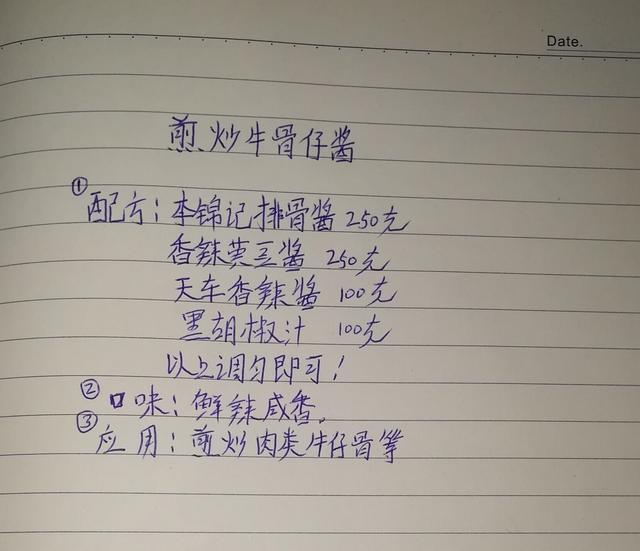 Date.
煎炒牛骨仔酱
①配方：李锦记排骨酱 250克
香辣黄豆酱 250克
天车香辣酱 100克
黑胡椒汁 100克
以上调匀即可！
②口味：鲜辣咸香。
③应用：煎炒肉类牛仔骨等